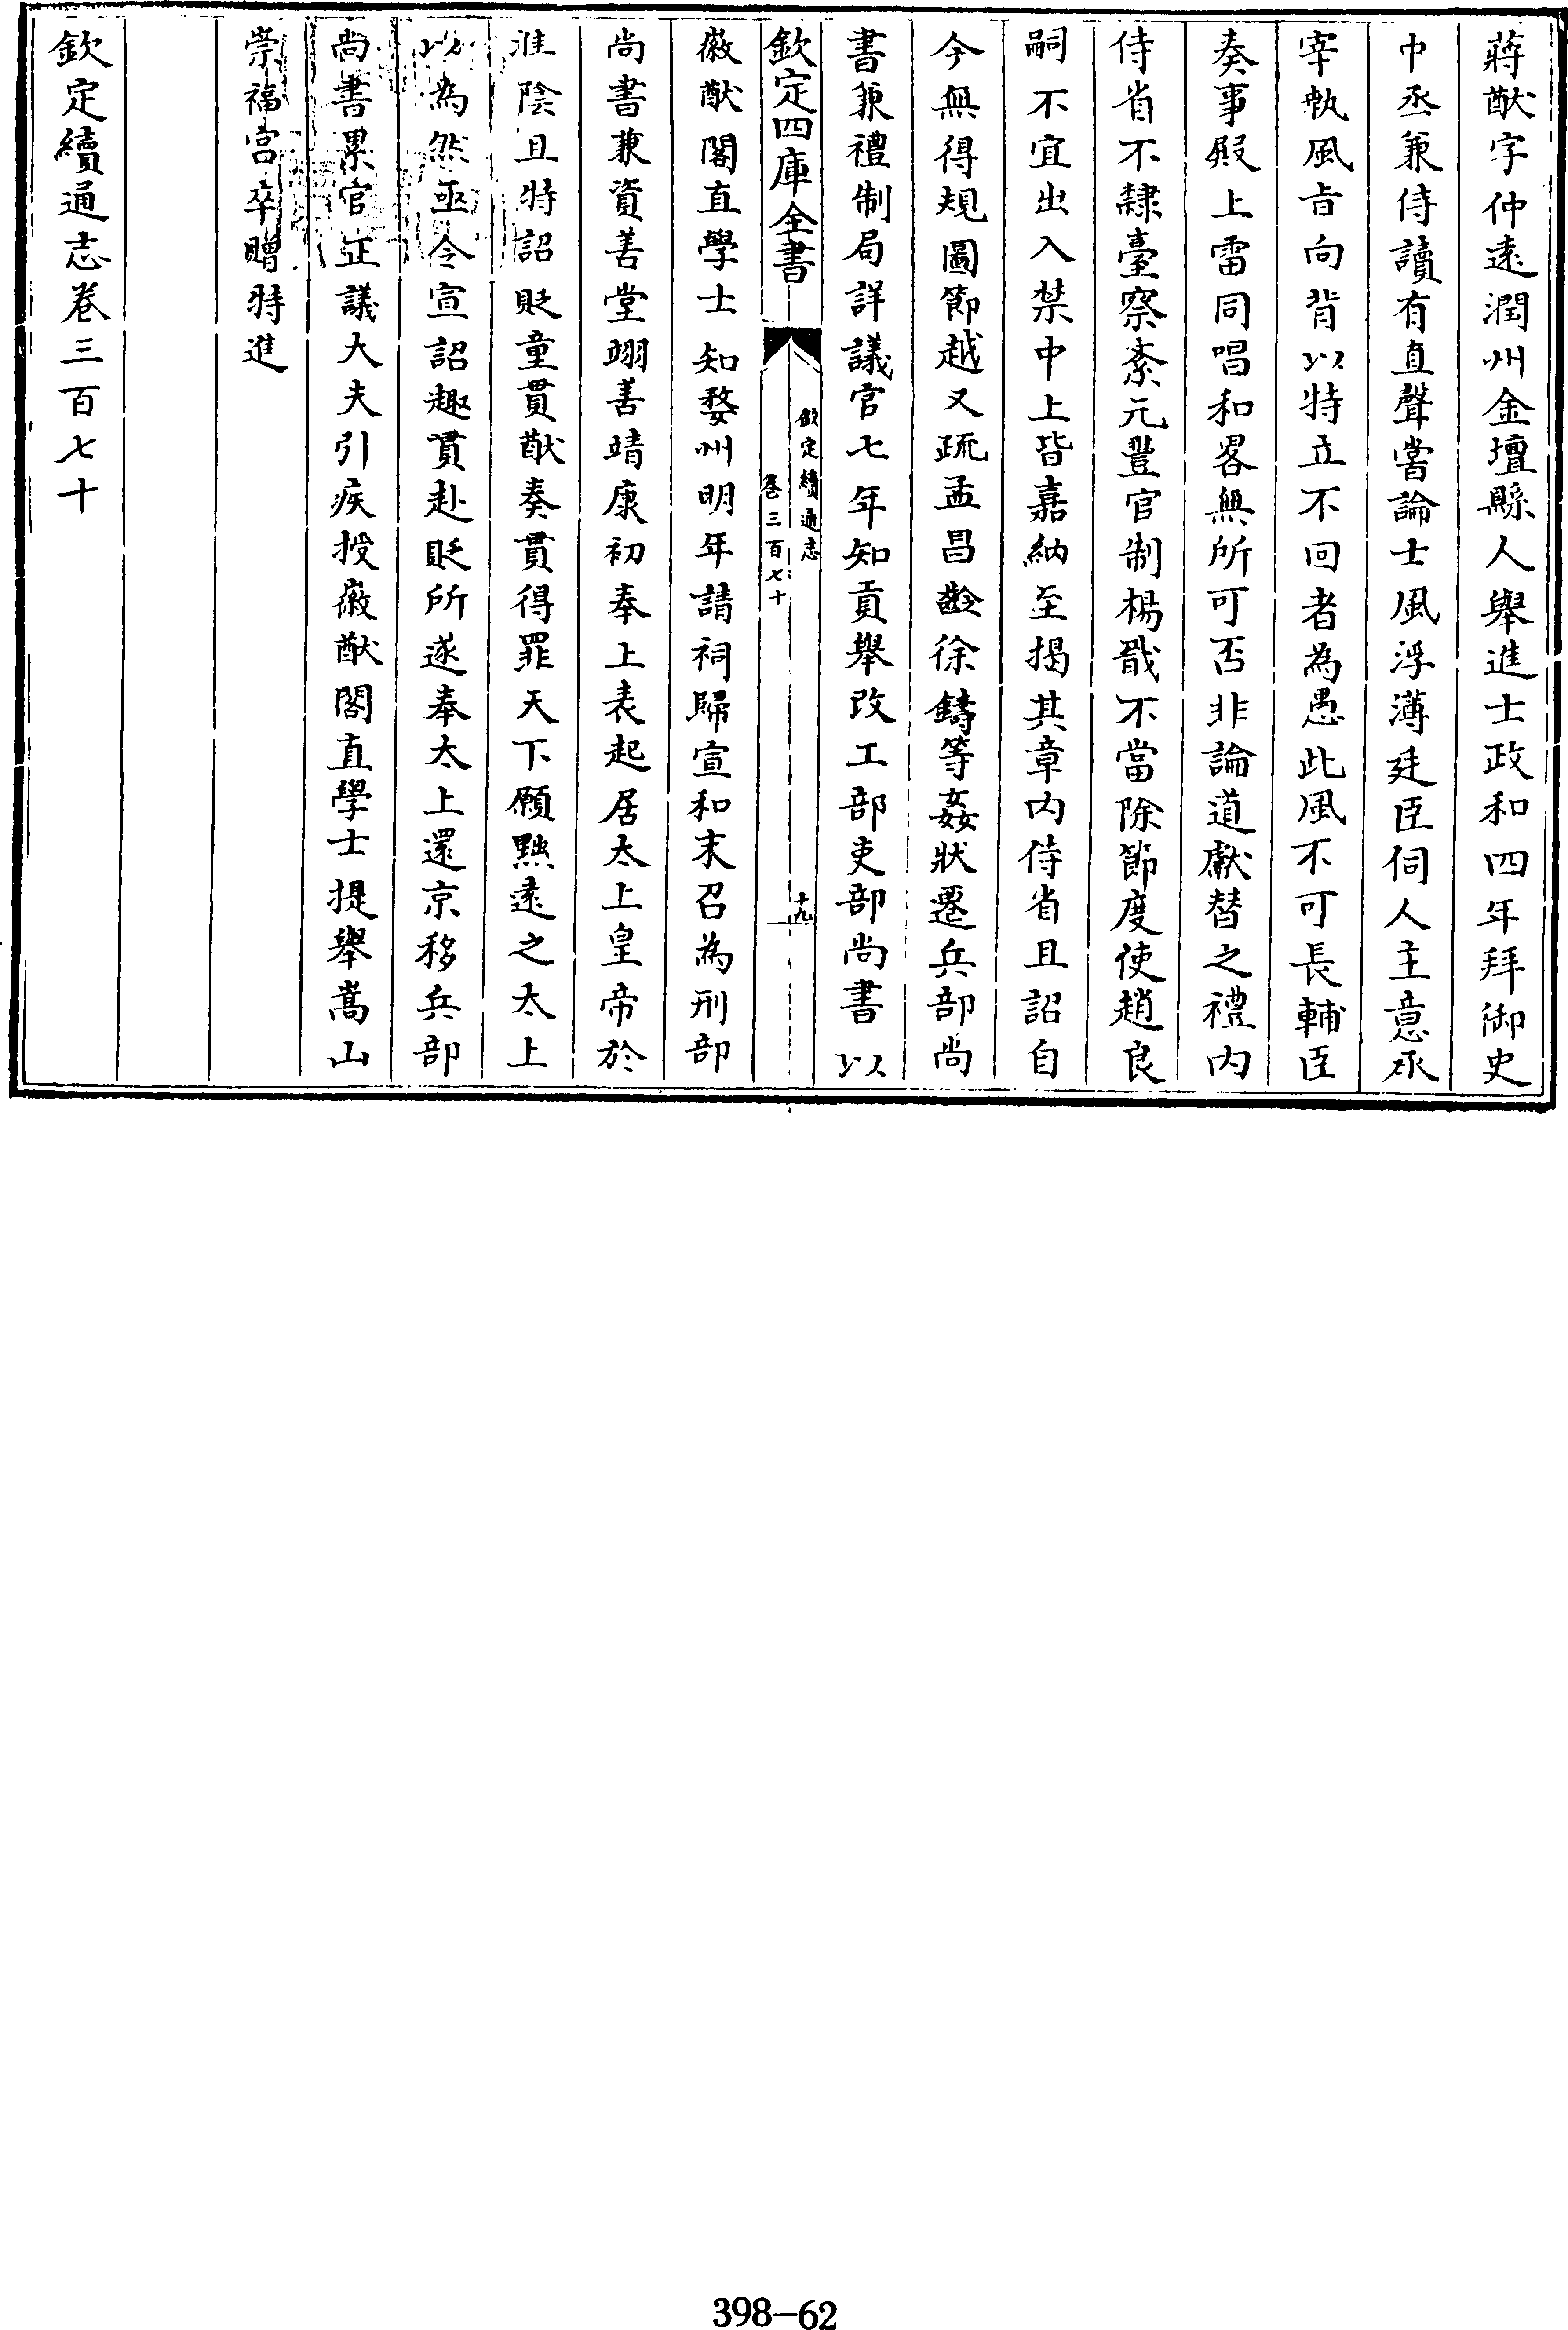 蔣猷字仲遠潤州金壇縣人舉進士政和四年拜御史
中丞兼侍讀有直聲嘗論士風浮薄廷臣伺人主意承
宰執風旨向背以特立不回者為愚此風不可長輔臣
奏事殿上雷同唱和畧無所可否非論道獻替之禮內
侍省不隸臺察紊元豐官制楊戩不當除節度使趙良
嗣不宜出入禁中上皆嘉納至揭其章內侍省且詔自
今無得規圖節越又疏孟昌齡徐鑄等姦狀遷兵部尚
書兼禮制局詳議官七年知貢舉改工部吏部尚書以
欽定四庫全書
欽定續通志
卷三百七十
十九
徽猷閣直學士知婺州明年請祠歸宣和末召為刑部
尚書兼資善堂翊善靖康初奉上表起居太上皇帝於
淮陰且特詔貶童貫猷奏貫得罪天下願黜遠之太上
以為然亟令宣詔趣貫赴貶所遂奉太上還京移兵部
尚書累官正議大夫引疾授徽猷閣直學士提舉嵩山
崇福宮卒贈特進
欽定續通志卷三百七十
398-62